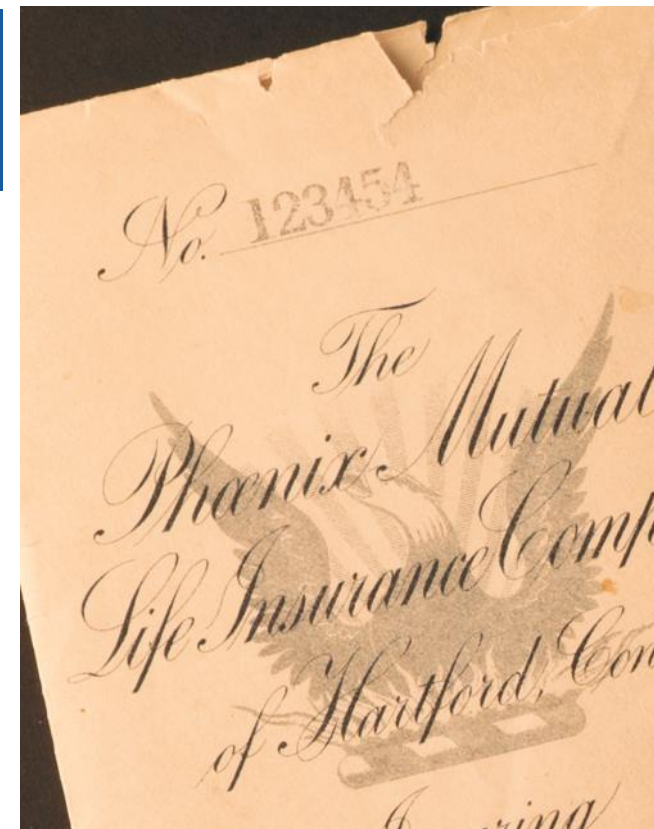 No. 123454
The
Phœnix Mutual
Life Insurance Comp
of Hartford, Con
Insuring